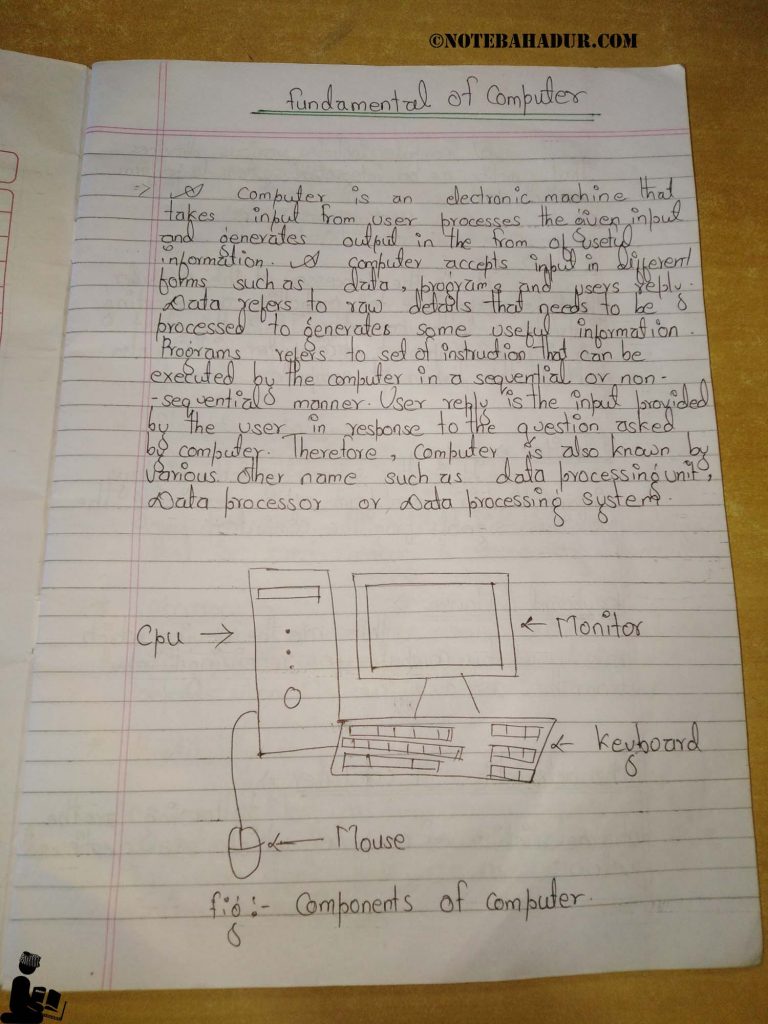 ©NOTEBAHADUR.COM
fundamental of Computer
=> A Computer is an electronic machine that
takes input from user processes the given input
and generates output in the from of useful
information. A computer accepts input in different
forms such as data, programs and users reply.
Data refers to raw details that needs to be
processed to generates some useful information.
Programs refers to set of instruction that can be
executed by the computer in a sequential or non-
-sequential manner. User reply is the input provided
by the user in response to the question asked
by computer. Therefore, Computer is also known by
various other name such as data processing unit,
Data processor or Data processing system.
Cpu →
← Monitor
← keyboard
← Mouse
fig :- Components of computer.